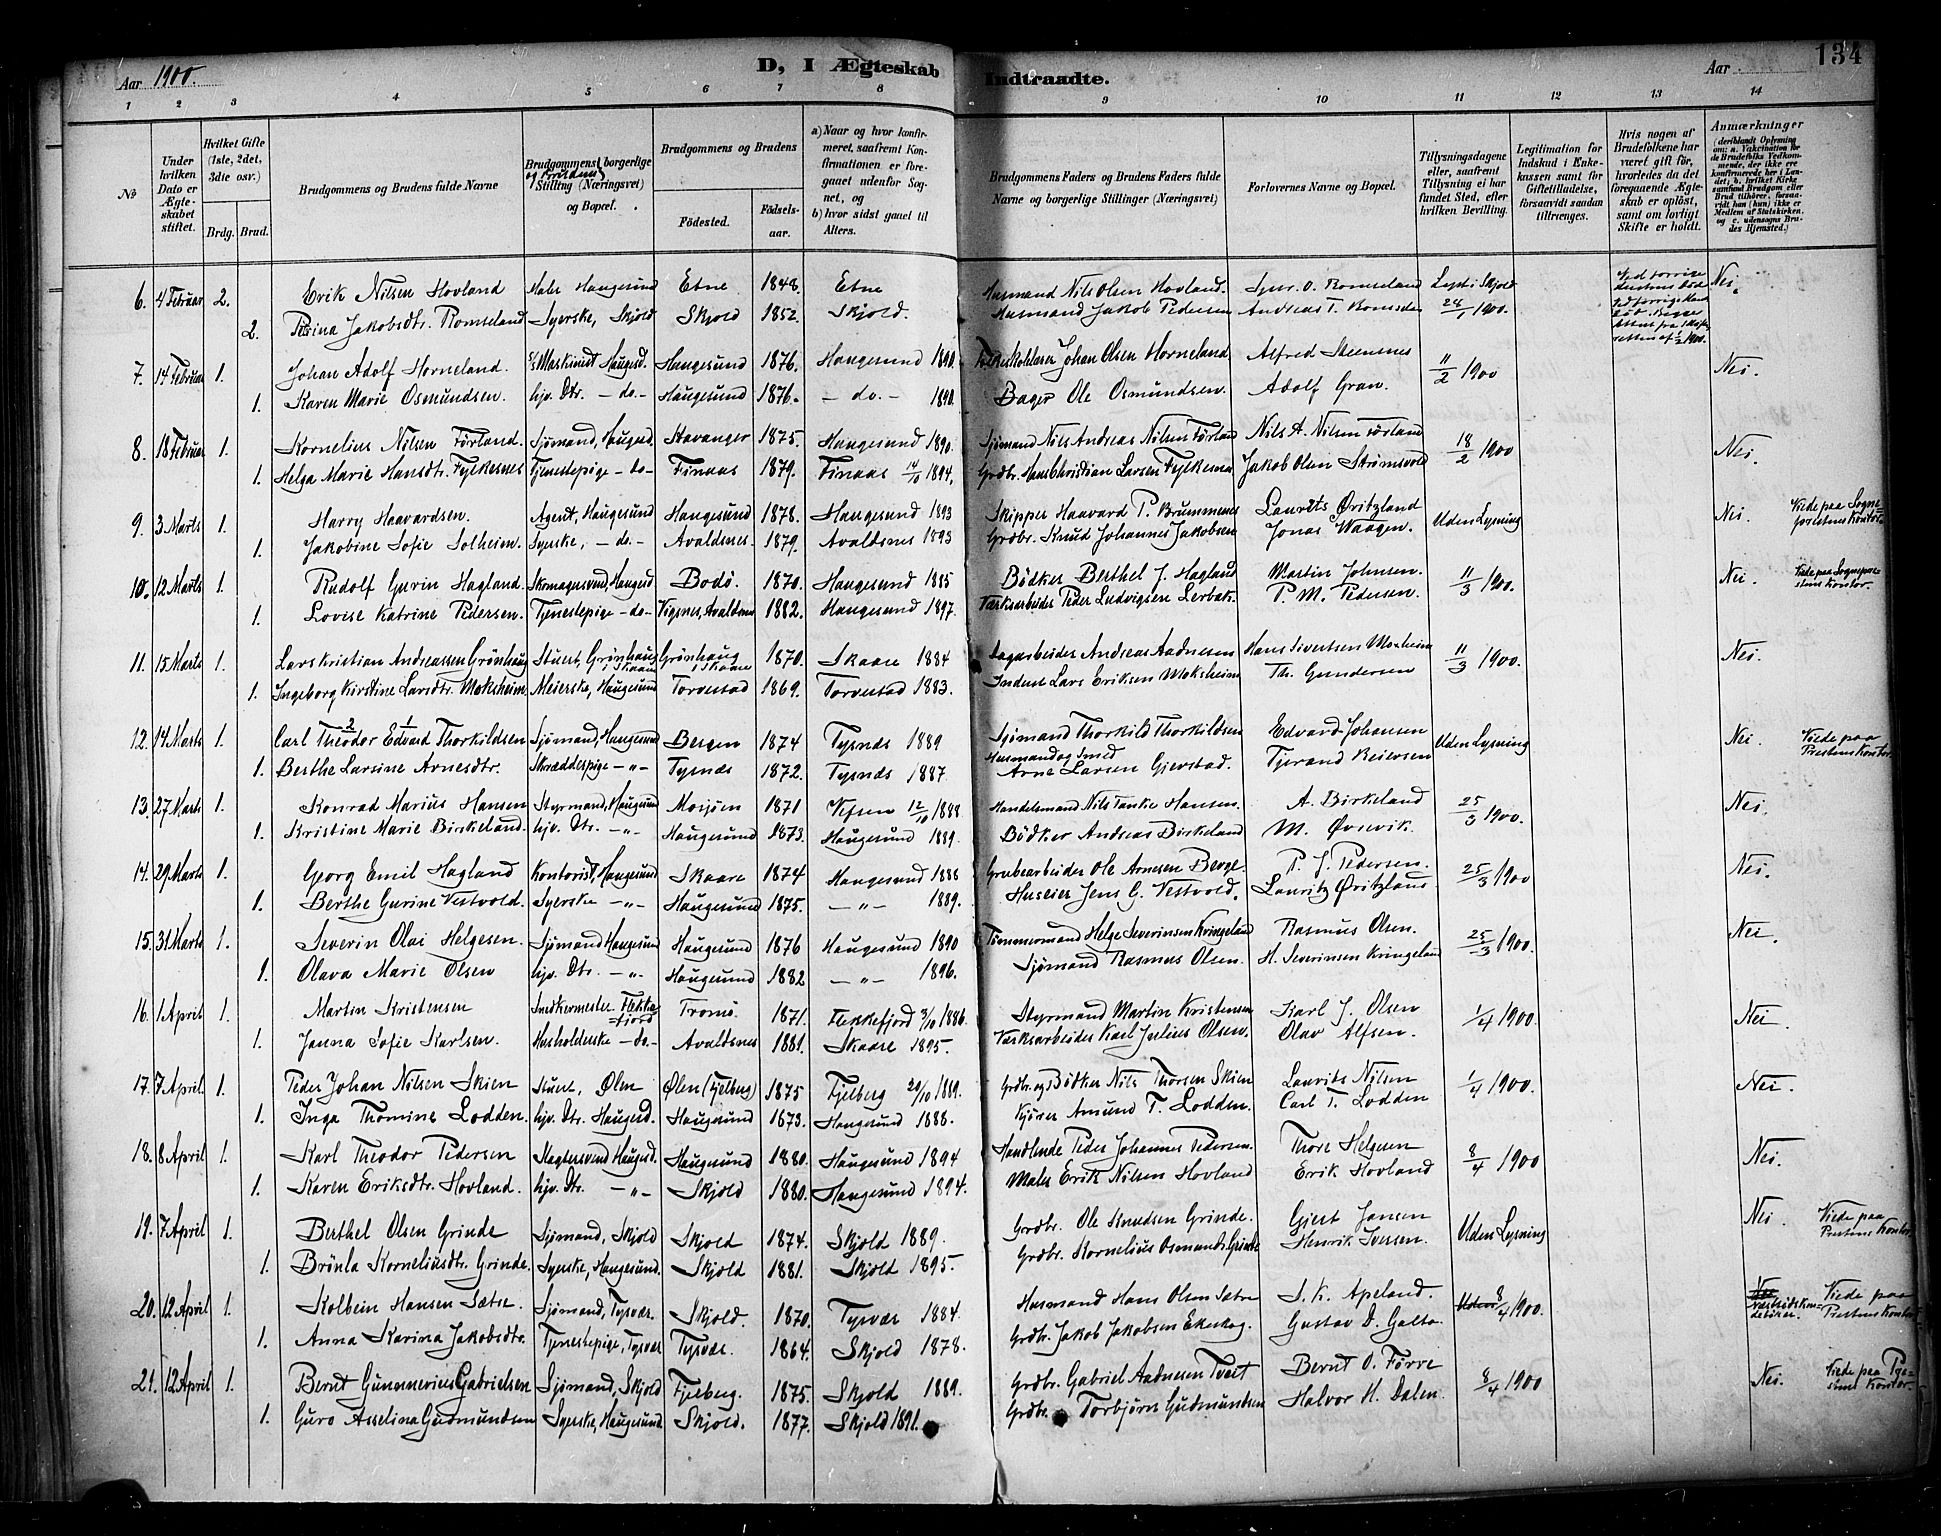 134
Aar 1900. D, I Ægteskab Indtraadte. Aar
1 2 3 4 5 6 7 8 9 10 11 12 13 14
No
Under hvilken Dato er Ægteskabet stiftet.
Hvilket Gifte (1ste, 2det, 3die osv.)
Brdg. Brud.
Brudgommens og Brudens fulde Navne
Brudgommens og Brudens borgerlige Stilling (Næringsvei) og Bopæl.
Brudgommens og Brudens
Födested. Födsels-aar.
a) Naar og hvor konfirmeret, saafremt Konfirmationen er foregaaet udenfor Sognet, og b) hvor sidst gaaet til Alters.
Brudgommens Faders og Brudens Faders fulde Navne og borgerlige Stillinger (Næringsvei)
Forlovernes Navne og Bopæl.
Tillysningsdagene eller, saafremt Tillysning ei har fundet Sted, efter hvilken Bevilling.
Legitimation for Indskud i Enkekassen samt for Giftetilladelse, forsaavidt saadan tiltrænges.
Hvis nogen af Brudefolkene har været gift för, hvorledes da det foregaaende Ægteskab er oplöst, samt om lovligt Skifte er holdt.
Anmærkninger
6. 4 Februar 2. Erik Nilsen Hovland Maler Haugesund Etne 1848. Etne Husmand Nils Olsen Hovland. O. Romseland Lyst i Skjold Nei.
2. Jakobsdtr. Romseland Syerske, Skjold Skjold 1852. Skjold. Husmand Jakob Pedersen Andreas T. 24/1 1900.
7. 14 Februar 1. Johan Adolf Horneland. Maskinist Haugesd. Haugesund 1876. Haugesund 1890. Johan Olsen Horneland Alfred Steensnes 11/2 1900 Nei.
1. Karen Marie Osmundsen. hjv. Dtr. - do - Haugesund 1876. - do - 1890. Bager Ole Osmundsen. Adolf Gran.
8. 18 Februar 1. Kornelius Nilsen Førland. Sjömand, Haugesd. Stavanger 1875. Haugesund 1890. Sjømand Nils Andreas Nilsen Førland Nils A. Nilsen Førland 18/2 1900 Nei.
1. Helga Marie Hansdtr. Fylkesnes Tjenestepige - do - Finaas 1879. Finaas 14/10 1894. Grdbr. Hans Christian Larsen Jakob Olsen Strømsvold
9. 3 Marts 1. Harry Haavardsen. Agent, Haugesund Haugesund 1878. Haugesund 1893 Skipper Haavard P. Brummenes Laurits Øritzland Uden Lysning Nei. Viede paa Sogneprestens Kontor.
1. Jakobine Sofie Solheim. Syerske, - do - Avaldsnes. 1879. Avaldsnes 1893 Grdbr. Knud Johannes Jakobsen Jonas Waagen.
10. 12 Marts 1. Rudolf Gurin Hagland. Skomagersvend, Haugesd Bodö. 1870. Haugesund 1885 Bödker Berthel J. Hagland Martin Johnsen. 11/3 1900. Nei. Viede paa Sogneprestens Kontor.
1. Lovise Katrine Pedersen. Tjenestepige - do - Vigsnes, Avaldsnes 1882. Haugesund 1897. Værksarbeider Peder Ludvigsen P. M. Pedersen.
11. 15 Marts 1. Lars Kristian Andreassen Grönhaug Stuert, Grönhaug Skaare Grönhaug Skaare 1870. Skaare 1884 Andreas Aadnesen Hans Sivertsen Moxheim 11/3 1900. Nei.
1. Ingeborg Kirstine Larsdtr. Moksheim. Meierske, Haugesund Torvestad 1869. Torvestad 1883. Inderst Lars Eriksen Moksheim Th. Gundersen
12. 14 Marts 1. Carl Theodor Edvard Thorkildsen Sjömand, Haugesund Bergen 1874 Tysnæs 1889 Sjømand Thorkild Thorkildsen Edvard Johansen Uden Lysning Nei. Viede paa Prestens Kontor.
1. Berthe Larsine Arnesdtr. Skræddepige - " - Tysnæs 1872. Tysnæs 1887. Husmand og Smed Arne Larsen Gjerstad. Tjerand Reiersen
13. 27 Marts 1. Konrad Marius Hansen Styrmand, Haugesund Mosjöen 1871 Vefsen 12/10 1888 Handelsmand Nils Tanke Hansen. A. Birkeland 25/3 1900. Nei.
1. Kristine Marie Birkeland. hjv. Dtr. - " - Haugesund 1873. Haugesund 1889. Bödker Andreas Birkeland M. Øvrevik.
14. 29 Marts 1. Georg Emil Hagland Kontorist, Haugesund Skaare 1874 Haugesund 1888 Grubearbeider Ole Arnesen Berge P. J. Pedersen. 25/3 1900 Nei.
1. Berthe Gurine Vestvold. Syerske - " - Haugesund 1875. - " - 1889. Huseier Jens G. Vestvold. Lauritz Øritzland
15. 31 Marts 1. Severin Olai Helgesen. Sjömand Haugesund Haugesund 1876 Haugesund 1890 Tømmermand Helge Severinsen Kringeland Rasmus Olsen. 25/3 1900. Nei.
1. Olava Marie Olsen hjv. Dtr. - " - Haugesund 1882 - " - 1896. Sjömand Rasmus Olsen. H. Severinsen Kringeland
16. 1 April 1. Martin Kristensen Snedkermester Flekkefjord Tromö. 1871. Flekkefjord 3/10 1886. Styrmand Martin Kristensen Karl J. Olsen 1/4 1900. Nei.
1. Janna Sofie Karlsen. Husholderske - do - Avaldsnes 1881. Skaare 1895. Værksarbeider Karl Julius Olsen. Olav Alfsen.
17. 7 April. 1. Peder Johan Nilsen Skien Stuert, Ølen Ølen (Fjelberg) 1875 Fjelberg 20/10 1889. Grdbr. og Bödker Nils Thorsen Skien Laurits Nilsen 1/4 1900. Nei.
1. Inga Thomine Lodden. hjv. Dtr. Haugesd. Haugesund 1873. Haugesund 1888. Kjörer Amund T. Lodden. Carl T. Lodden
18. 8 April 1. Karl Theodor Pedersen Slagtersvend Haugesd. Haugesund 1880. Haugesund 1894 Handlende Peder Johannes Pedersen. Thore Helgesen 8/4 1900 Nei.
1. Karen Eriksdtr. Hovland. hjv. Dtr. - " - Skjold 1880. Haugesund 1894. Maler Erik Nilsen Hovland Erik Hovland
19. 7 April 1. Berthel Olsen Grinde Sjömand, Skjold Skjold 1874. Skjold 1889. Grdbr. Ole Knudsen Grinde. Gjert Jansen Uden Lysning Nei. Viede paa Prestens Kontor.
1. Brönla Korneliusdtr. Grinde. Syerske, Haugesund. Skjold 1881. Skjold 1895. Grdbr. Kornelius Osmunds. Grinde Henrik Iversen.
20. 12 April 1. Kolbein Hansen Sætre. Sjömand, Tysvær. Skjold. 1870. Tysvær 1884. Husmand Hans Olsen Sætre S. K. Apeland. Uden 8/4 1900. Viede paa Prestens Kontor.
1. Anna Karina Jakobsdtr. Tjenestepige, Tysvær Tysvær. 1864. Skjold 1878. Grdbr. Jakob Jakobsen Ekeskog. Gustav D. Galta.
21. 12 April 1. Bernt Gunnerius Gabrielsen Sjömand, Skjold Fjelberg. 1875. Skjold 1889. Grdbr. Gabriel Aadnesen Tveit Bernt O. Førre 8/4 1900 Nei.
1. Guro Asselina Gudmundsen Syerske, Haugesund. Skjold. 1877. Skjold 1891. Grdbr. Torbjörn Gudmundsen Halvor H. Dalen.